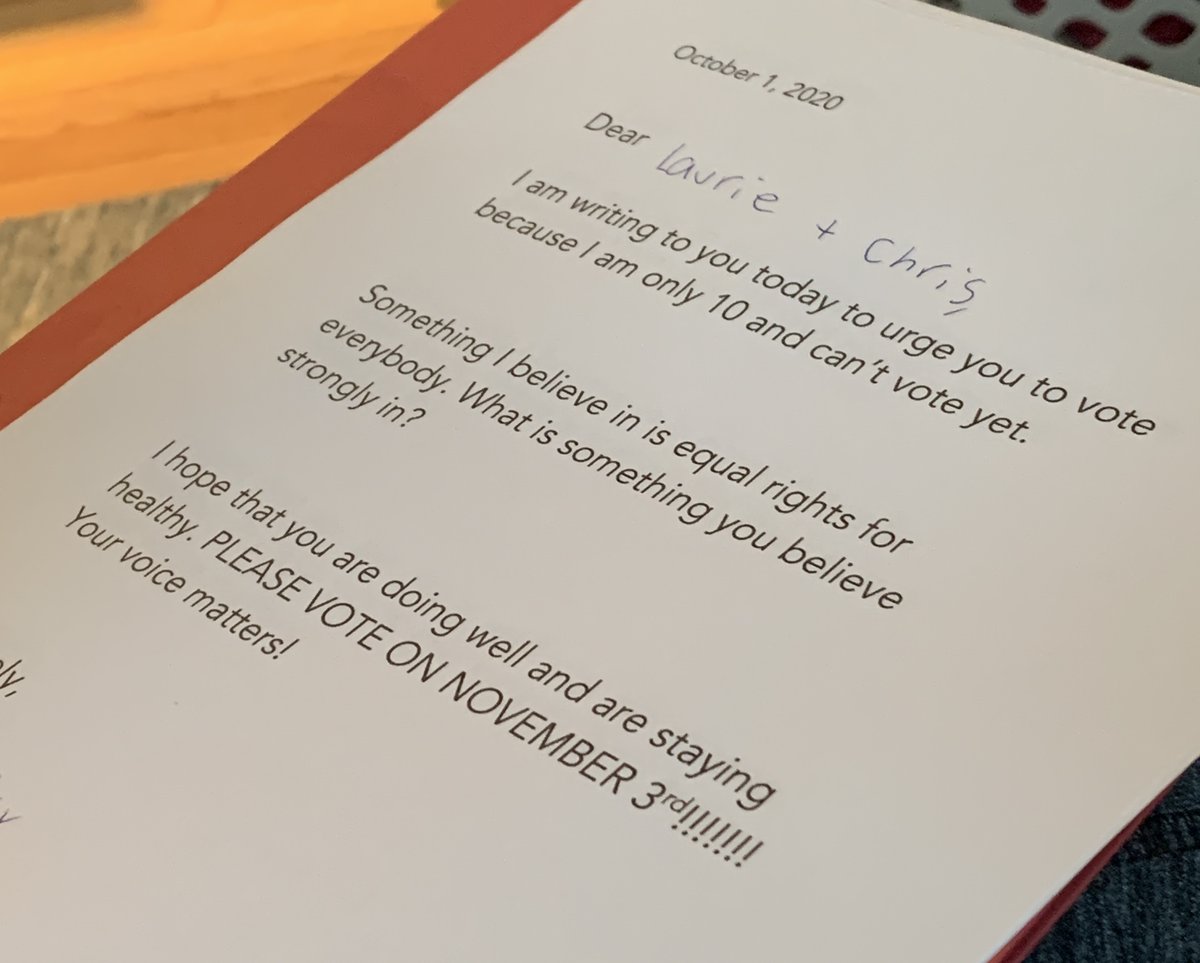 October 1, 2020
Dear Laurie + Chris,
I am writing to you today to urge you to vote
because I am only 10 and can't vote yet.
Something I believe in is equal rights for
everybody. What is something you believe
strongly in?
I hope that you are doing well and are staying
healthy. PLEASE VOTE ON NOVEMBER 3rd!!!!!!!!
Your voice matters!